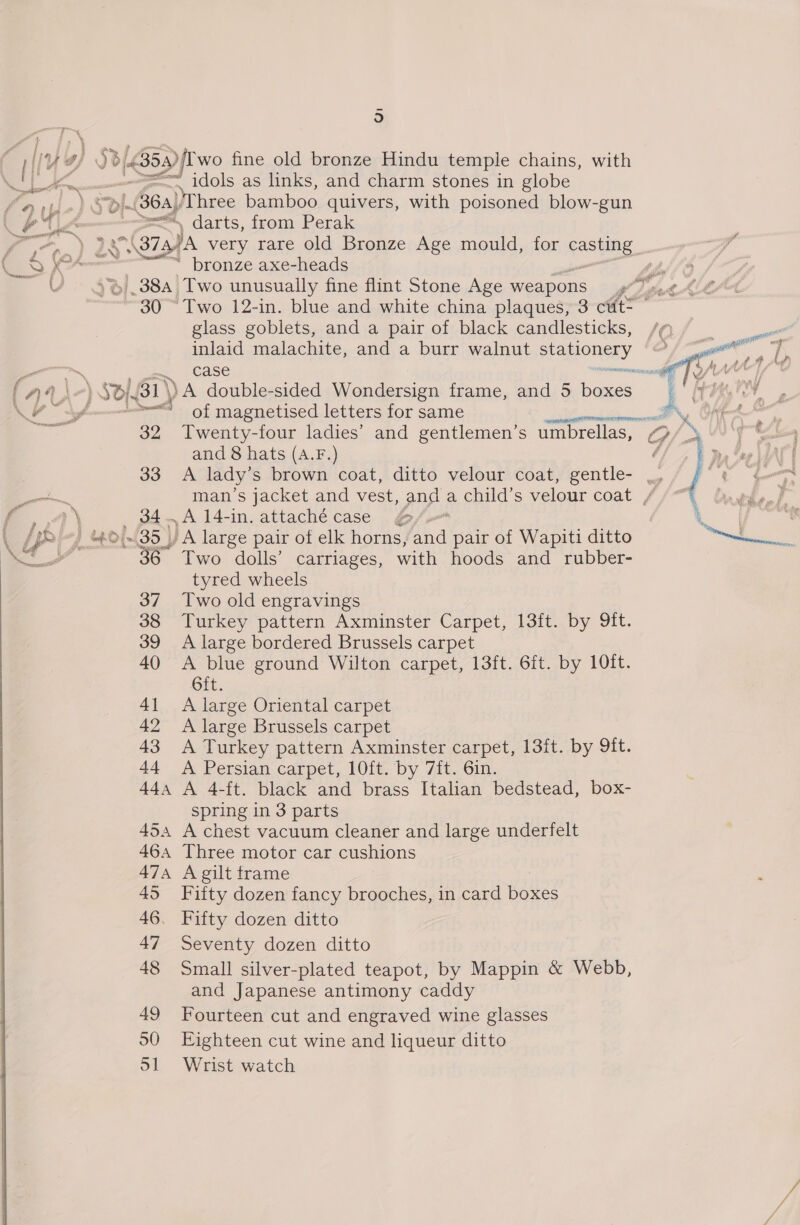 5
35A Two fine old bronze Hindu temple chains, with
idols as links, and charm stones in globe
36A Three bamboo quivers, with poisoned blow-gun
darts, from Perak
37A A very rare old Bronze Age mould, for casting
bronze axe-heads
38A Two unusually fine flint Stone Age weapons
30 Two 12-in. blue and white china plaques, 3 cut-
glass goblets, and a pair of black candlesticks,
inlaid malachite, and a burr walnut stationery
case
31 A double-sided Wondersign frame, and 5 boxes
of magnetised letters for same
32 Twenty-four ladies' and gentlemen's umbrellas,
and 8 hats (A.F.)
33 A lady's brown coat, ditto velour coat, gentle-
man's jacket and vest, and a child's velour coat
34 A 14-in. attaché case
35 A large pair of elk horns, and pair of Wapiti ditto
36 Two dolls' carriages, with hoods and rubber-
tyred wheels
37 Two old engravings
38 Turkey pattern Axminster Carpet, 13ft. by 9ft.
39 A large bordered Brussels carpet
40 A blue ground Wilton carpet, 13ft. 6ft. by 10ft.
6ft.
41 A large Oriental carpet
42 A large Brussels carpet
43 A Turkey pattern Axminster carpet, 13ft. by 9ft.
44 A Persian carpet, 10ft. by 7ft. 6in.
44A A 4-ft. black and brass Italian bedstead, box-
spring in 3 parts
45A A chest vacuum cleaner and large underfelt
46A Three motor car cushions
47A A gilt frame
45 Fifty dozen fancy brooches, in card boxes
46. Fifty dozen ditto
47 Seventy dozen ditto
48 Small silver-plated teapot, by Mappin & Webb,
and Japanese antimony caddy
49 Fourteen cut and engraved wine glasses
50 Eighteen cut wine and liqueur ditto
51 Wrist watch